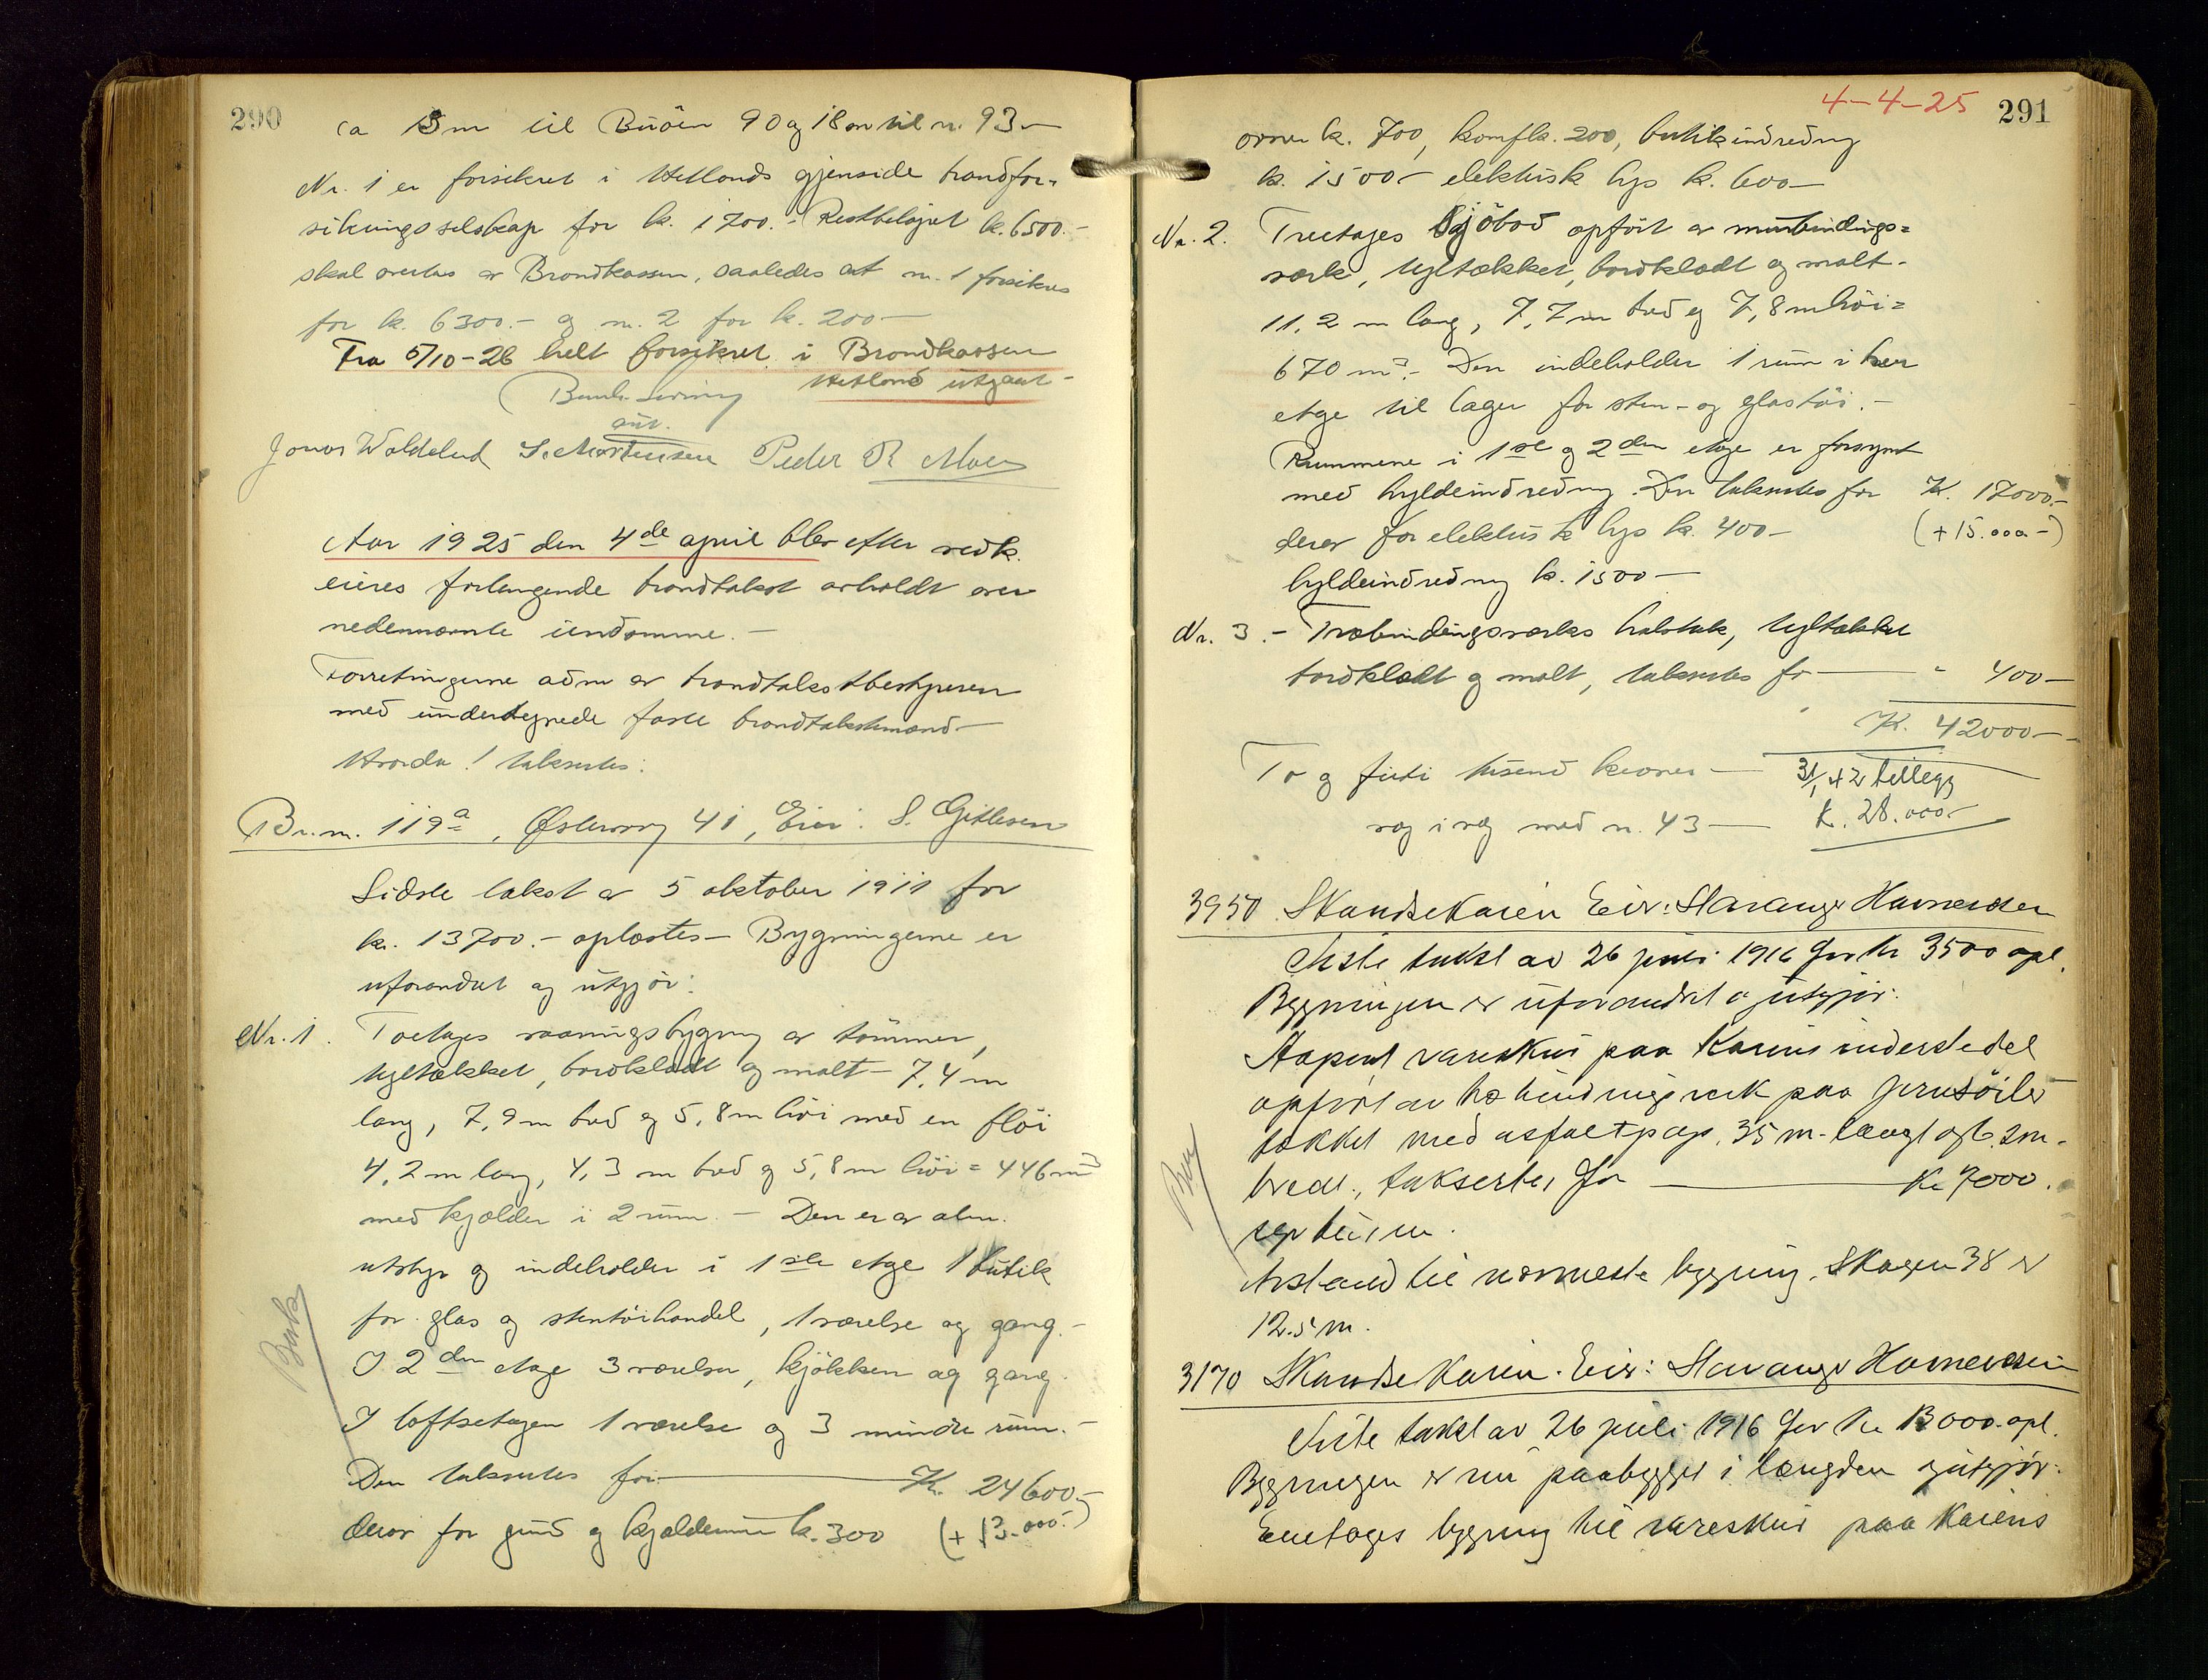 290
ca 15 m til Buøen 90 og 18 m til nr. 93 -
Nr. 1 er forsikret i Hetlands gjenside brandfor-
sikringsselskap for kr. 1700.- Restbeløpet kr. 6500.-
skal overtas av Brandkassen, saaledes at nr. 1 forsikres
for kr. 6300.- og nr. 2 for kr. 200 -
Fra 5/10-26 helt forsikret i Brandkassen
Hetland utgaat -
aut.
Peder R Moen
Aar 1925 den 4de april blev efter vedk.
eieres forlangende brandtakst avholdt over
nedennævnte eiendomme. -
Forretningerne adm av brandtakstbestyreren
med undertegnede faste brandtakstmænd -
Hvorda! taksertes:
Br. nr. 119a, Østervaag 41, Eier: S. Gitlesen
Sidste takst av 5 oktober 1911 for
kr. 13700.- oplæstes - Bygningerne er
uforandret og utgjør:
Nr. 1. Toetages vaaningsbygning av tømmer,
tegltækket, bordklædt og malt - 7,4 m
lang, 7,9 m bred og 5,8 m høi med en fløi
4,2 m lang, 4,3 m bred og 5,8 m høi = 446 m3
med kjælder i 2 rum. - Den er av alm.
utstyr og indeholder i 1ste etage 1 butik
for glas og stentøihandel, 1 værelse og gang. -
I 2den etage 3 værelser, kjøkken og gang.
I loftsetagen 1 værelse og 3 mindre rum. -
Den taksertes for Kr. 24600.-
derav for grund og kjælderrum kr. 300 (+ 13.000.-)
4-4-25 291
ovner kr. 700, komfkr. 200, butikindredning
kr. 1500 - elektrisk lys kr. 600 -
Nr. 2. Treetages Sjøbod opført av murbindings=
værk, tegltækket, bordklædt og malt -
11,2 m lang, 7,7 m bred og 7,8 m høi =
670 m3. - Den indeholder 1 rum i hver
etage til lager for sten- og glastøi. -
Rummene i 1ste og 2den etage er forsynt
med hyldeindredning. Den taksertes for Kr. 17000.-
derav for elektrisk lys kr. 400 - (+ 15.000 -)
hyldeindredning kr. 1500 -
Nr. 3. - Træbindingsværks halvtak, tegltækket
bordklædt og malt, taksertes for - " 400 -
Kr. 42000 -
To og firti tusend kroner - 31/1 42 tillegg
væg i væg med nr. 43 - kr. 28.000 -
3950 Skandsekaien Eier: Stavanger Havnevæsen
Siste takst av 26 juli 1916 for kr 3500 opl.
Bygningen er uforandret og utgjør:
Aapent vareskur paa kaiens inderste del
opført av træbindingsverk paa jernsøiler
tækket med asfaltpap, 35 m. langt og 6.2 m.
bredt, takseres for Kr 7000.
syv tusen.
Avstand til nærmeste bygning, Skagen 38 er
12.5 m.
3170 Skandsekaien. Eier: Stavanger Havnevæsen
Siste takst av 26 juli 1916 for kr 13000. opl.
Bygningen er nu paabygget i længden og utgjør:
Eenetages bygning til vareskur paa kaiens